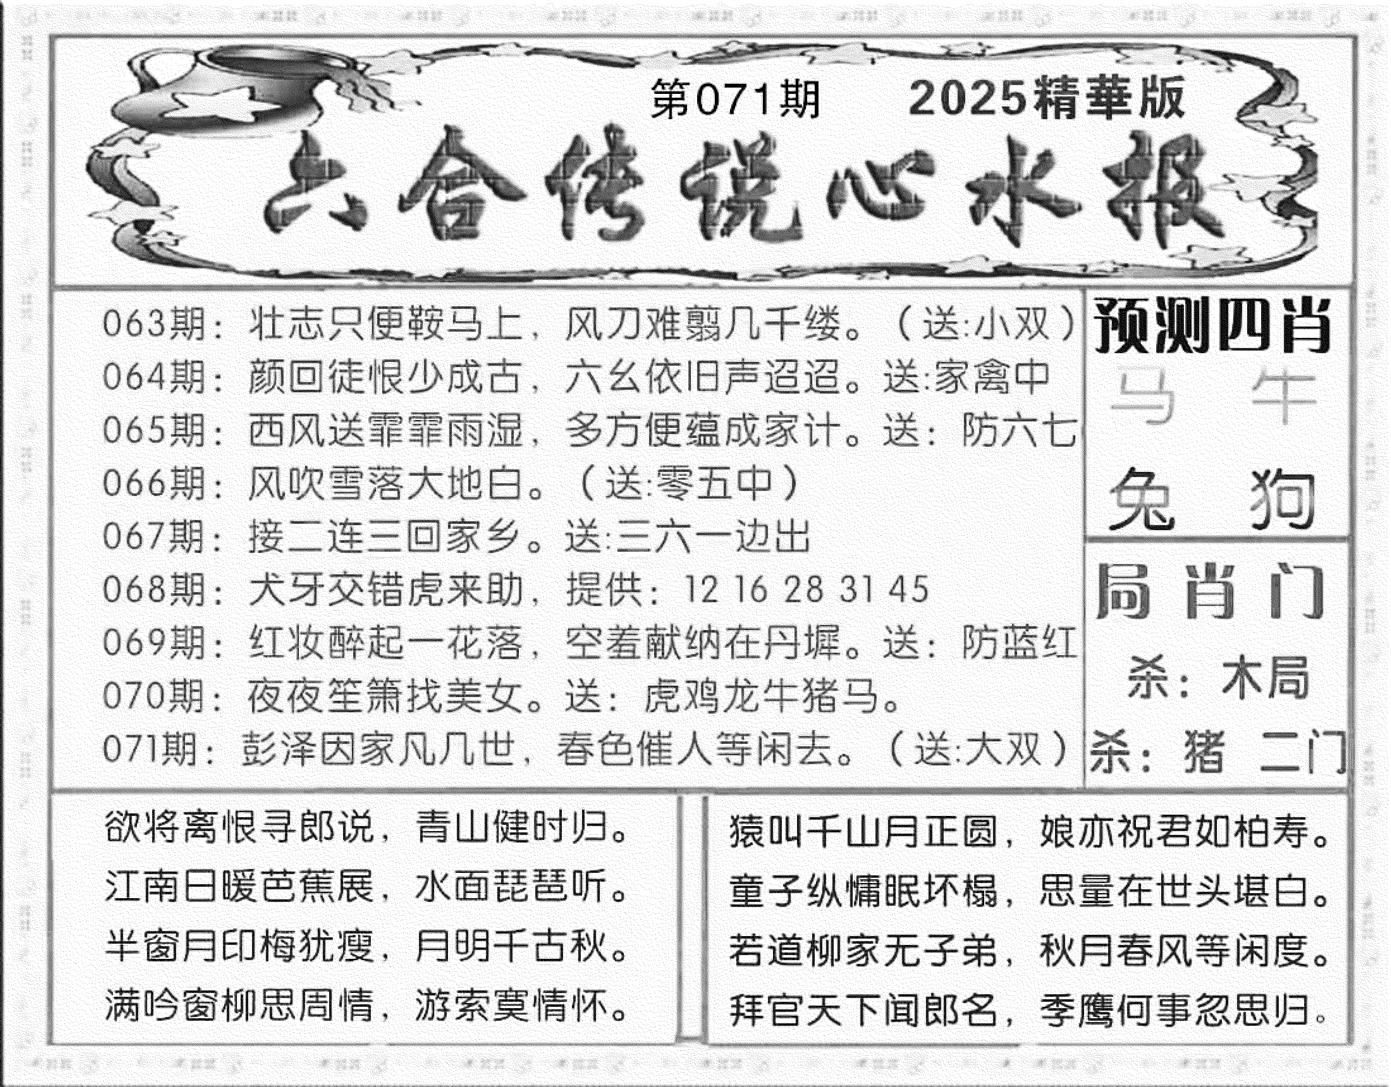 第071期 2025精華版
六合传说心水报
063期：壮志只便鞍马上，风刀难翦几千缕。（送:小双）
064期：颜回徒恨少成古，六幺依旧声迢迢。送:家禽中
065期：西风送霏霏雨湿，多方便蕴成家计。送：防六七
066期：风吹雪落大地白。（送:零五中）
067期：接二连三回家乡。送:三六一边出
068期：犬牙交错虎来助，提供：12 16 28 31 45
069期：红妆醉起一花落，空羞献纳在丹墀。送：防蓝红
070期：夜夜笙箫找美女。送：虎鸡龙牛猪马。
071期：彭泽因家凡几世，春色催人等闲去。（送:大双）
预测四肖
马 牛
兔 狗
局肖门
杀：木局
杀：猪 二门
欲将离恨寻郎说，青山健时归。
江南日暖芭蕉展，水面琵琶听。
半窗月印梅犹瘦，月明千古秋。
满吟窗柳思周情，游索寞情怀。
猿叫千山月正圆，娘亦祝君如柏寿。
童子纵慵眠坏榻，思量在世头堪白。
若道柳家无子弟，秋月春风等闲度。
拜官天下闻郎名，季鹰何事忽思归。